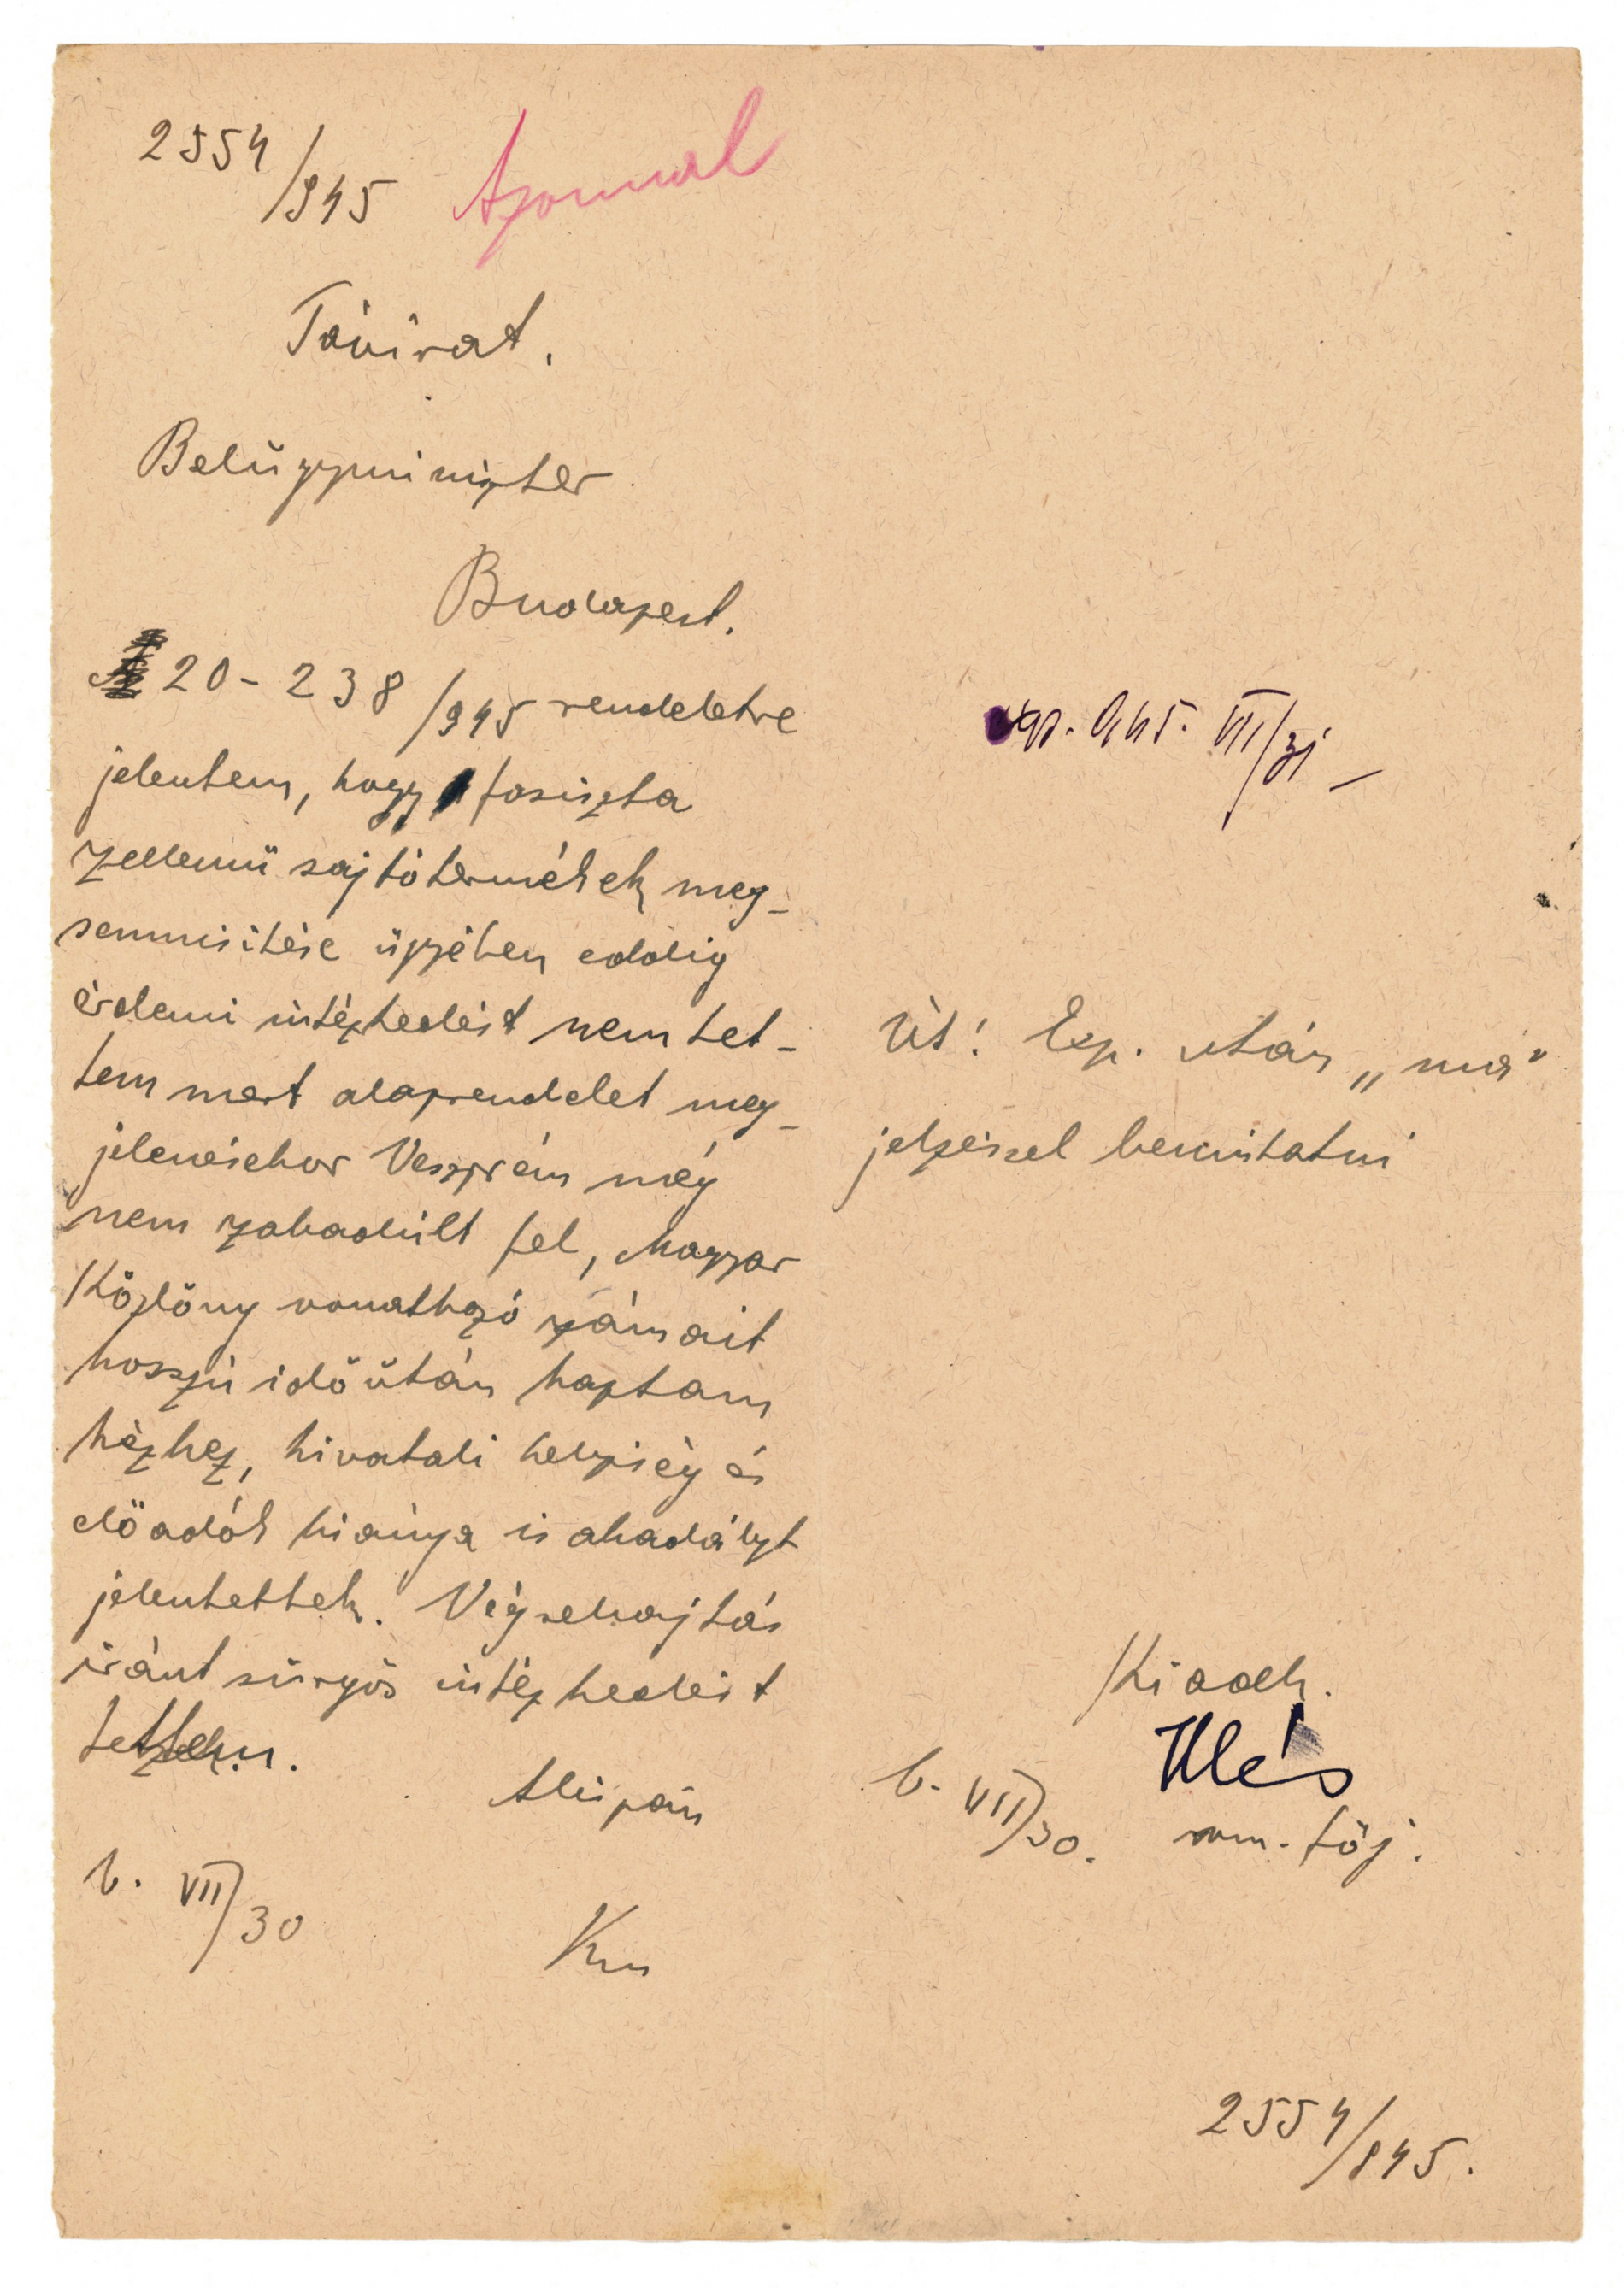 2554/945 Azonnal
Távirat.
Belügyminiszter
Budapest.
20-238/945 rendeletre
jelentem, hogy fasiszta
szellemü sajtótermékek meg-
semmisitése ügyében eddig
érdemi intézkedést nem tet-
tem mert alaprendelet meg-
jelenésekor Veszprém még
nem szabadult fel, Magyar
Közlöny vonatkozó számait
hosszú idő után kaptam
kézhez, hivatali helyiség és
előadók hiánya is akadályt
jelentettek. Végrehajtás
iránt sürgős intézkedést
tettem.
Alispán
b. VII/30
Km
exp. 945. VII/31 –
Út! Exp. után „má"
jelzéssel bemutatni
Kiadh.
Illés
b. VII/30. vm. főj.
2554/945.